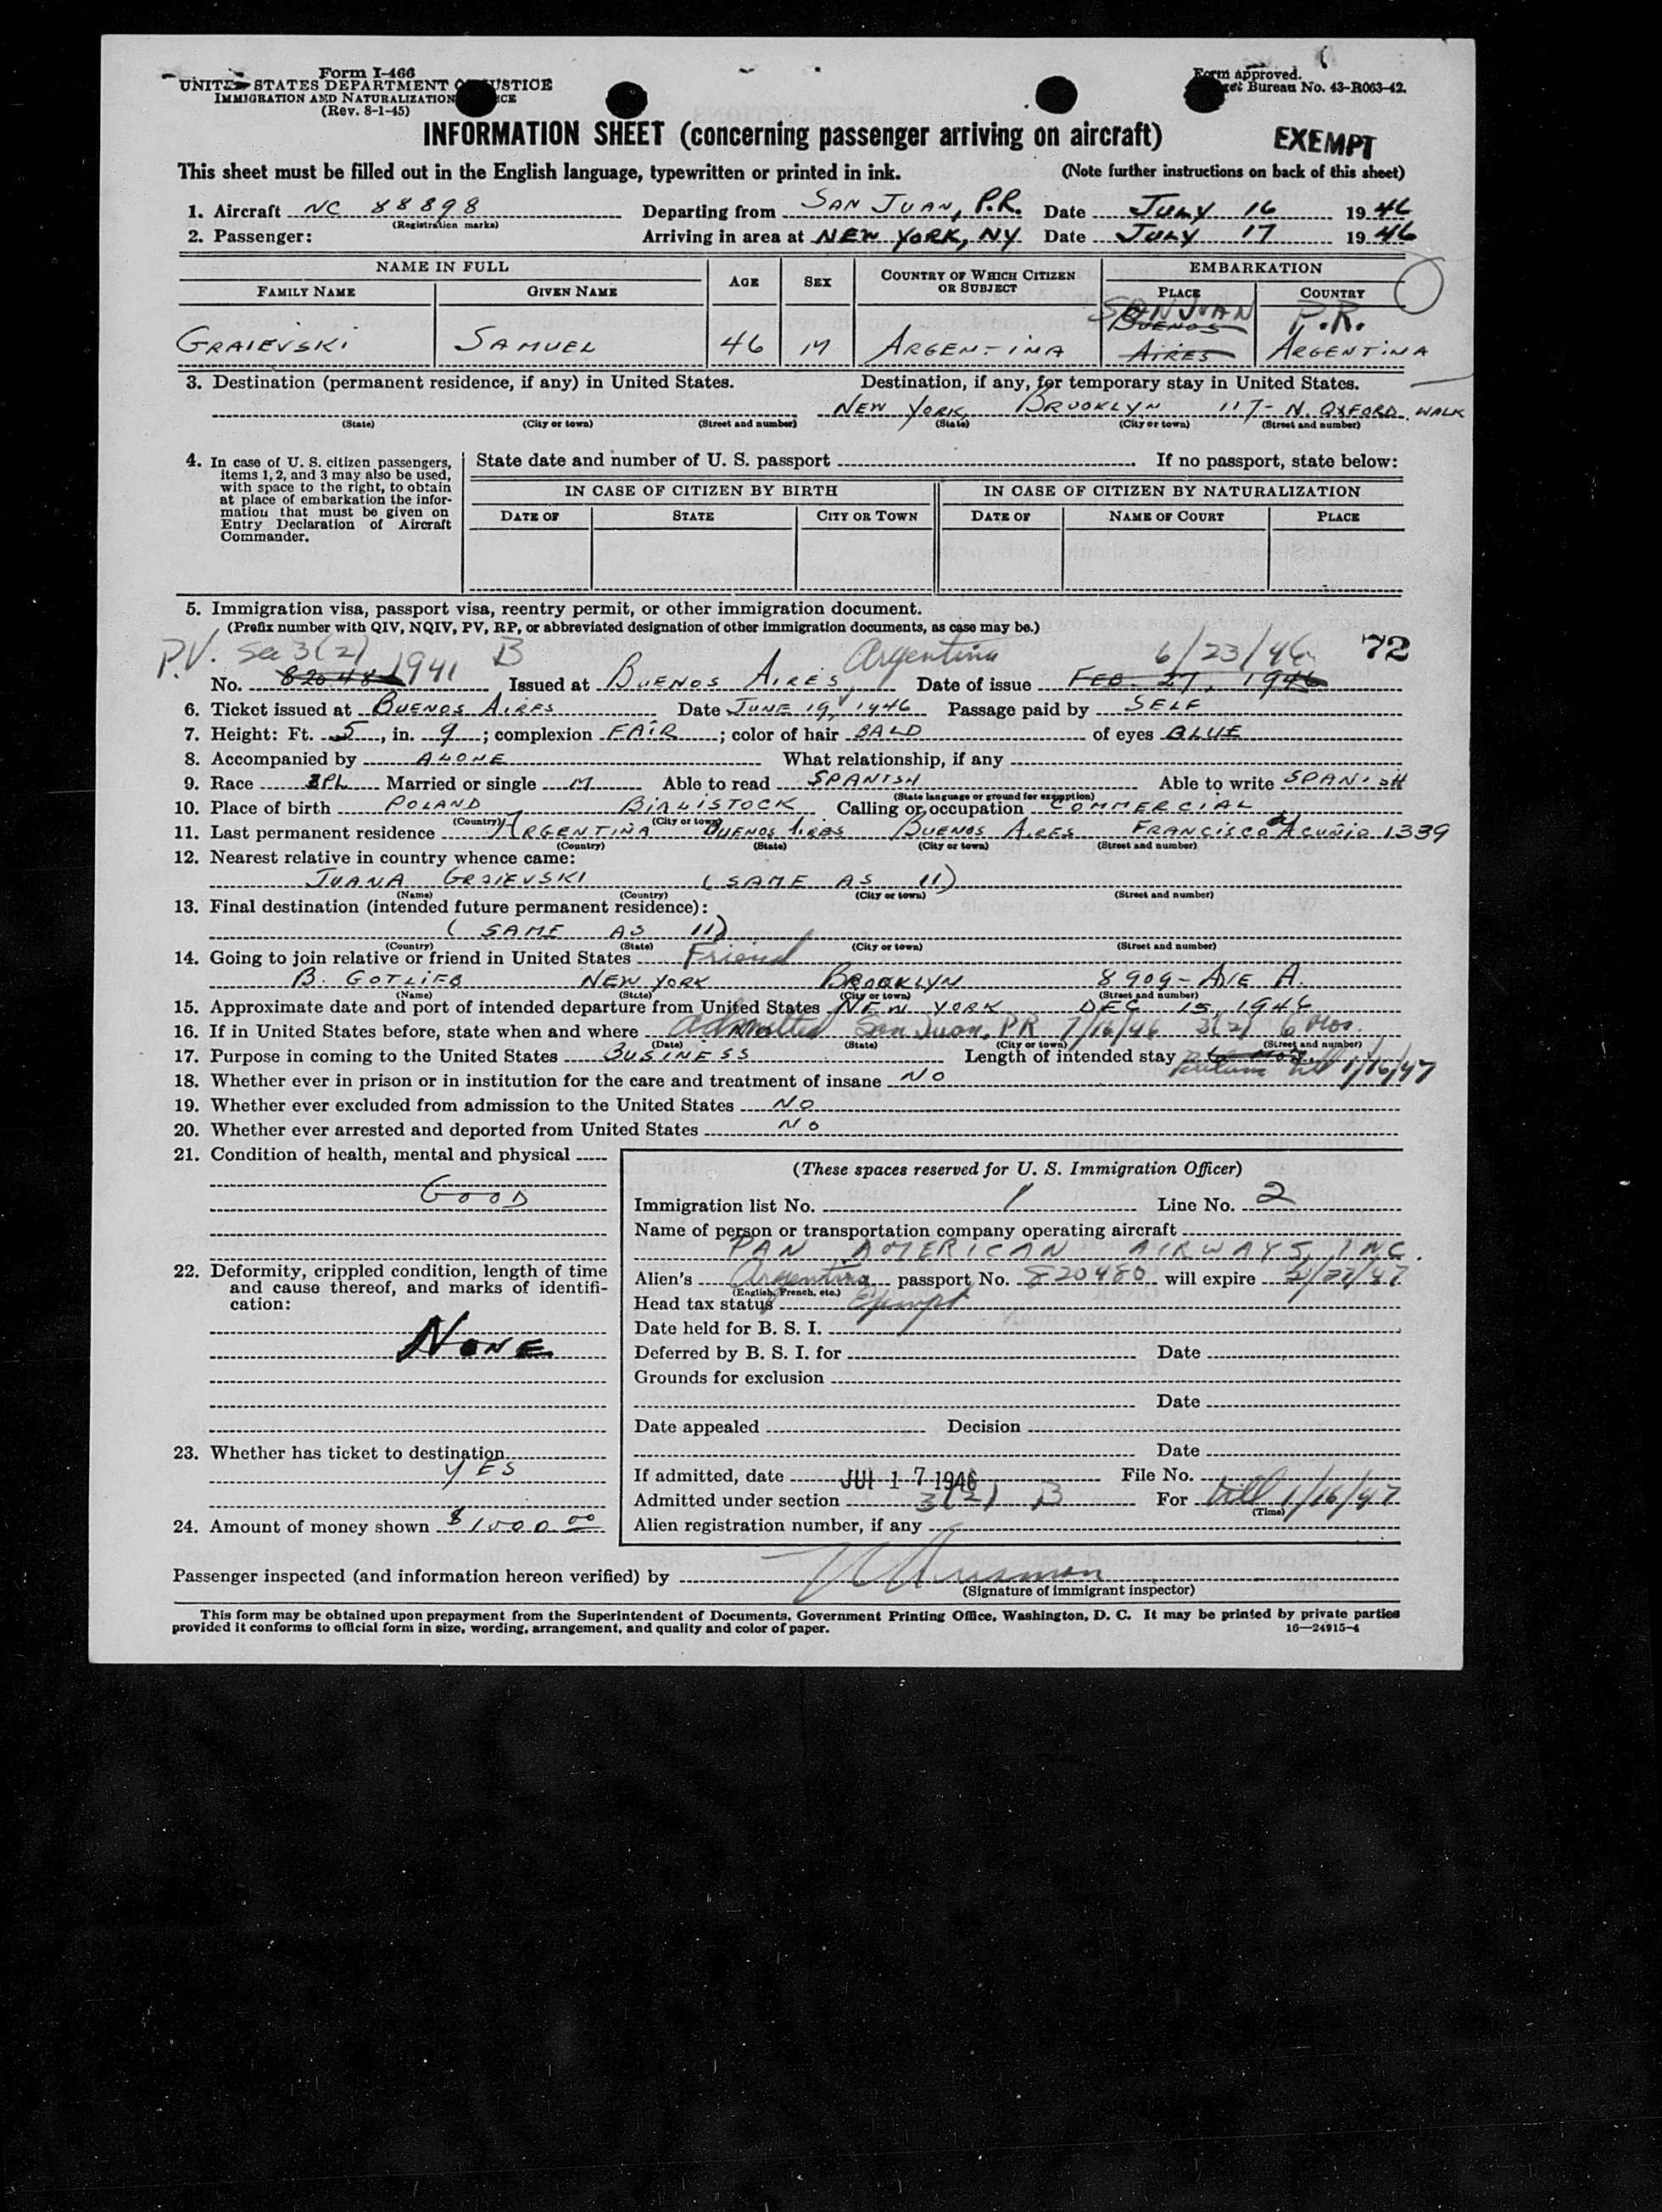 Form I-466
UNITED STATES DEPARTMENT OF JUSTICE
IMMIGRATION AND NATURALIZATION
(Rev. 8-1-45)
Form approved.
Bureau No. 43-R063-42.
INFORMATION SHEET (concerning passenger arriving on aircraft)
EXEMPT
This sheet must be filled out in the English language, typewritten or printed in ink. (Note further instructions on back of this sheet)
1. Aircraft NC 88898 Departing from SAN JUAN, P.R. Date JULY 16 1946
(Registration marks)
2. Passenger: Arriving in area at NEW YORK, NY Date JULY 17 1946
NAME IN FULL AGE SEX COUNTRY OF WHICH CITIZEN OR SUBJECT EMBARKATION
FAMILY NAME GIVEN NAME PLACE COUNTRY
SAN JUAN P.R.
GRAIEVSKI SAMUEL 46 M ARGENTINA BUENOS AIRES ARGENTINA
3. Destination (permanent residence, if any) in United States. Destination, if any, for temporary stay in United States.
NEW YORK, BROOKLYN 117- N. OXFORD WALK
(State) (City or town) (Street and number) (State) (City or town) (Street and number)
4. In case of U. S. citizen passengers, items 1, 2, and 3 may also be used, with space to the right, to obtain at place of embarkation the information that must be given on Entry Declaration of Aircraft Commander.
State date and number of U. S. passport If no passport, state below:
IN CASE OF CITIZEN BY BIRTH IN CASE OF CITIZEN BY NATURALIZATION
DATE OF STATE CITY OR TOWN DATE OF NAME OF COURT PLACE
5. Immigration visa, passport visa, reentry permit, or other immigration document.
(Prefix number with QIV, NQIV, PV, RP, or abbreviated designation of other immigration documents, as case may be.)
P.V. Sec 3(2) B Argentina 6/23/46 72
No. 1941 Issued at BUENOS AIRES, Date of issue FEB. 27, 1946
6. Ticket issued at BUENOS AIRES Date JUNE 19, 1946 Passage paid by SELF
7. Height: Ft. 5, in. 9; complexion FAIR; color of hair BALD of eyes BLUE
8. Accompanied by ALONE What relationship, if any
9. Race Married or single M Able to read SPANISH Able to write SPANISH
(State language or ground for exemption)
10. Place of birth POLAND BIALISTOCK Calling or occupation COMMERCIAL
(Country) (City or town)
11. Last permanent residence ARGENTINA BUENOS AIRES BUENOS AIRES FRANCISCO ACUÑA 1339
(Country) (State) (City or town) (Street and number)
12. Nearest relative in country whence came:
JUANA GRAIEVSKI (SAME AS 11)
(Name) (Country) (City or town) (Street and number)
13. Final destination (intended future permanent residence):
(SAME AS 11)
(Country) (State) (City or town) (Street and number)
14. Going to join relative or friend in United States Friend
B. GOTLIEB NEW YORK BROOKLYN 8909- AVE A.
(Name) (State) (City or town) (Street and number)
15. Approximate date and port of intended departure from United States NEW YORK DEC 15, 1946
16. If in United States before, state when and where admitted San Juan, PR 7/16/46 3(2) 6 mos.
(Date) (State) (City or town) (Street and number)
17. Purpose in coming to the United States BUSINESS Length of intended stay till 1/16/47
18. Whether ever in prison or in institution for the care and treatment of insane NO
19. Whether ever excluded from admission to the United States NO
20. Whether ever arrested and deported from United States NO
21. Condition of health, mental and physical
GOOD
22. Deformity, crippled condition, length of time and cause thereof, and marks of identification:
NONE
23. Whether has ticket to destination
YES
24. Amount of money shown $1000.00
(These spaces reserved for U. S. Immigration Officer)
Immigration list No. 1 Line No. 2
Name of person or transportation company operating aircraft
PAN AMERICAN AIRWAYS, INC.
Alien's Argentina passport No. 820480 will expire 2/27/47
(English, French, etc.)
Head tax status Exempt
Date held for B. S. I.
Deferred by B. S. I. for Date
Grounds for exclusion
Date
Date appealed Decision
Date
If admitted, date JUL 17 1946 File No.
Admitted under section 3(2) B For till 1/16/47
(Time)
Alien registration number, if any
Passenger inspected (and information hereon verified) by
(Signature of immigrant inspector)
This form may be obtained upon prepayment from the Superintendent of Documents, Government Printing Office, Washington, D. C. It may be printed by private parties
provided it conforms to official form in size, wording, arrangement, and quality and color of paper. 16—24915-4